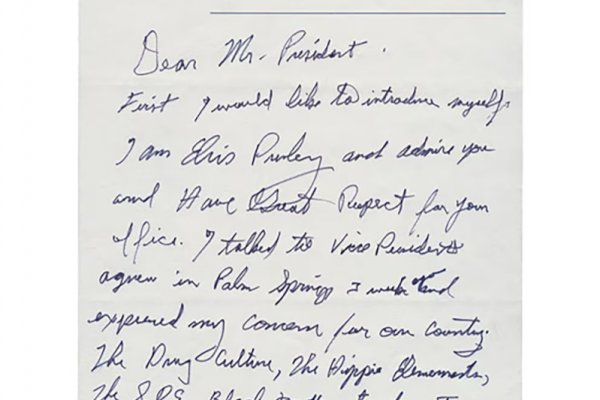 Dear Mr. President.
First I would like to introduce myself.
I am Elvis Presley and admire you
and Have Great Respect for your
office. I talked to Vice President
Agnew in Palm Springs I week ago and
expressed my concern for our country.
The Drug Culture, The Hippie Elements,
The SDS, Black